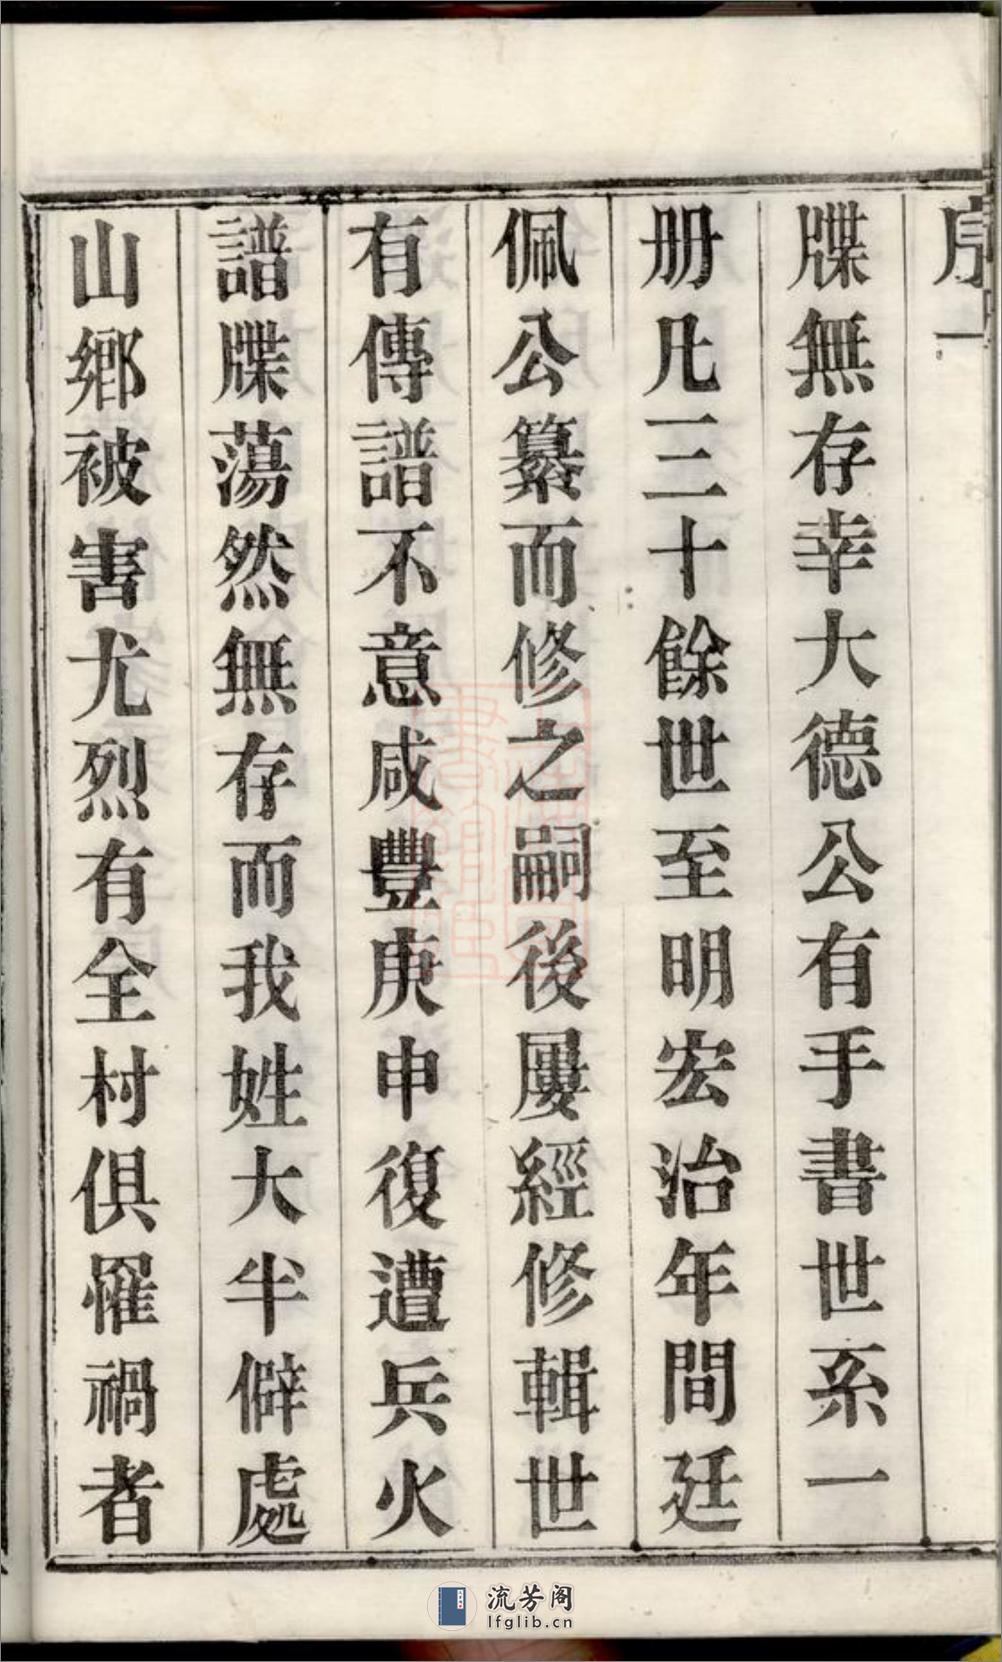 序一
牒無存幸大德公有手書世系一
册凡三十餘世至明宏治年間廷
佩公纂而修之嗣後屢經修輯世
有傳譜不意咸豐庚申復遭兵火
譜牒蕩然無存而我姓大半僻處
山鄉被害尤烈有全村俱罹禍者
流芳阁
lfglib.cn